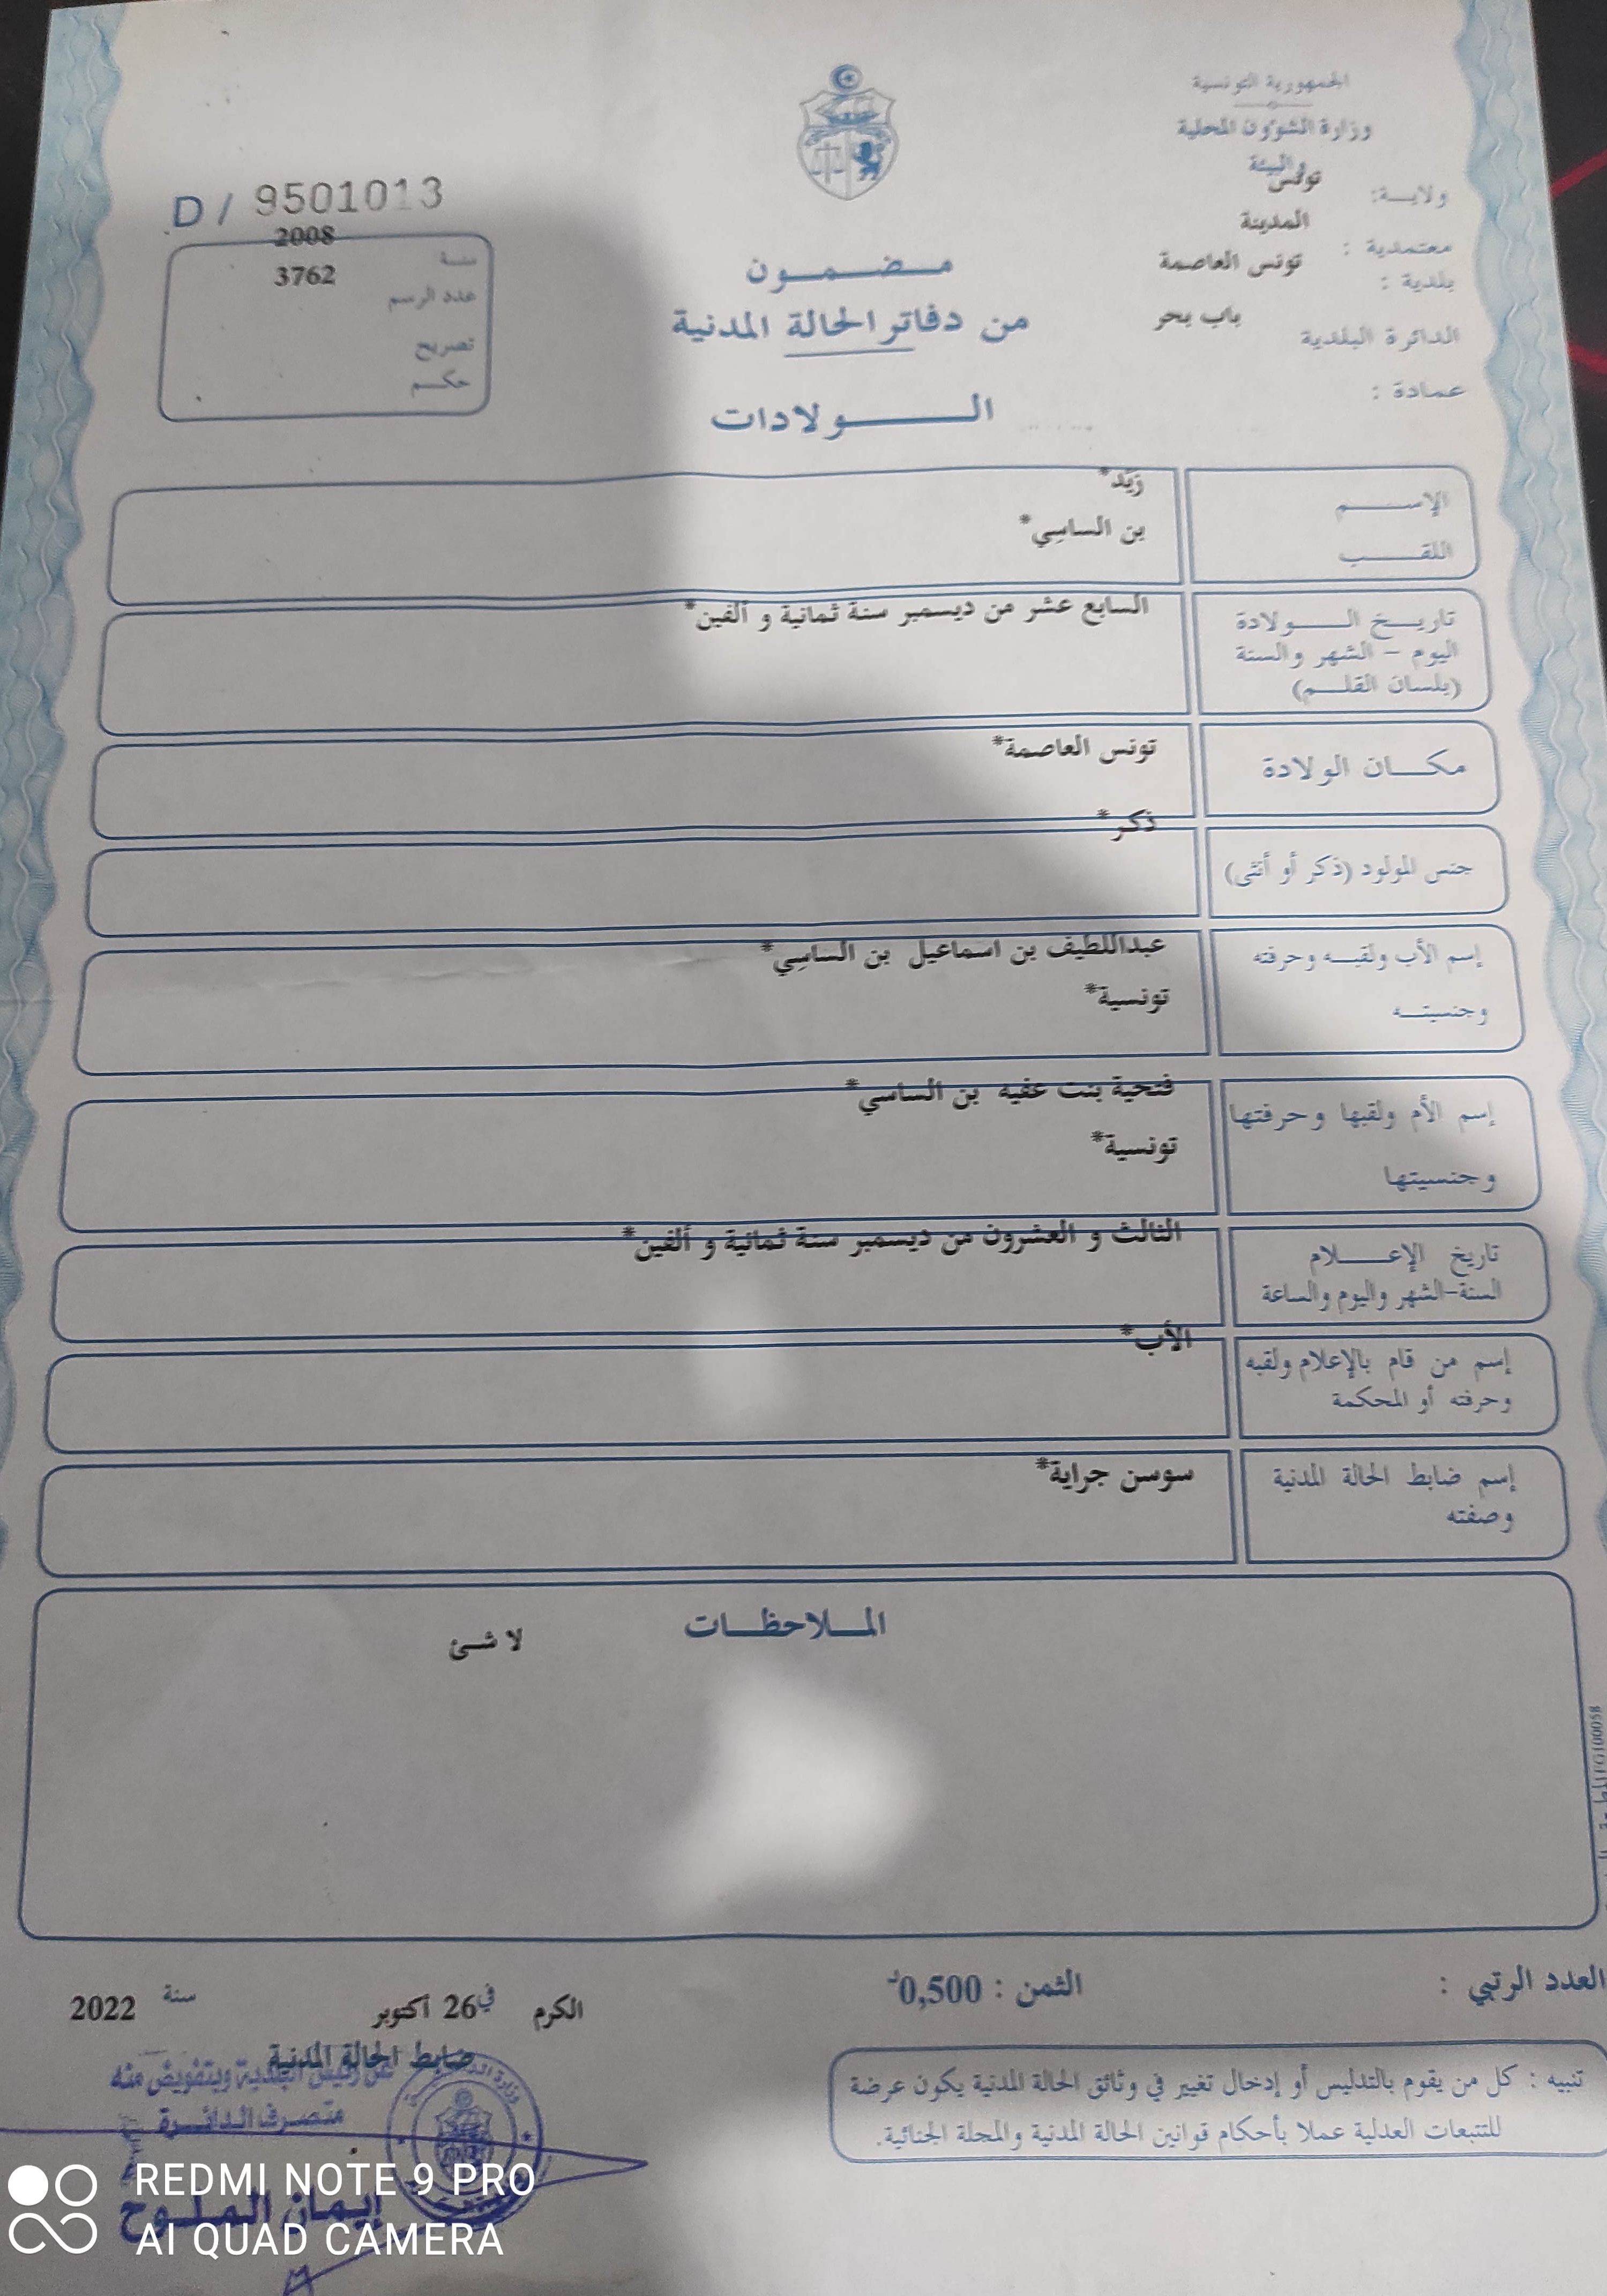 الجمهورية التونسية
وزارة الشؤون المحلية
والبيئة
ولايـــة: تونس
معتمدية : المدينة
بلدية : تونس العاصمة
الدائرة البلدية باب بحر
عمادة :
D / 9501013
سنـة 2008
عدد الرسم 3762
تصريح
حكـم
مـضـمـون
من دفاتر الحالة المدنية
الـــولادات
الإســـم زيَد*
اللقـــب بن الساسِي*
تاريـخ الـــولادة السابع عشر من ديسمبر سنة ثمانية و ألفين*
اليوم – الشهر والسنة
(بلسان القلـم)
مكـان الولادة تونس العاصمة*
جنس المولود (ذكر أو أنثى) ذكر*
إسم الأب ولقبـه وحرفته عبداللطيف بن اسماعيل بن الساسِي*
وجنسيتـه تونسية*
إسم الأم ولقبها وحرفتها فتحية بنت عفيه بن الساسي*
وجنسيتها تونسية*
تاريخ الإعـــلام الثالث و العشرون من ديسمبر سنة ثمانية و ألفين*
السنة-الشهر واليوم والساعة
إسم من قام بالإعلام ولقبه الأب*
وحرفته أو المحكمة
إسم ضابط الحالة المدنية سوسن جراية*
وصفته
المـلاحظـات
لا شئ
العدد الرتبي :
الثمن : 0,500د
الكرم في 26 أكتوبر سنة 2022
ضابط الحالة المدنية
عن رئيس البلدية وبتفويض منه
متصرف الدائـرة
إيمان الملـوح
تنبيه : كل من يقوم بالتدليس أو إدخال تغيير في وثائق الحالة المدنية يكون عرضة
للتتبعات العدلية عملا بأحكام قوانين الحالة المدنية والمجلة الجنائية.
REDMI NOTE 9 PRO
AI QUAD CAMERA